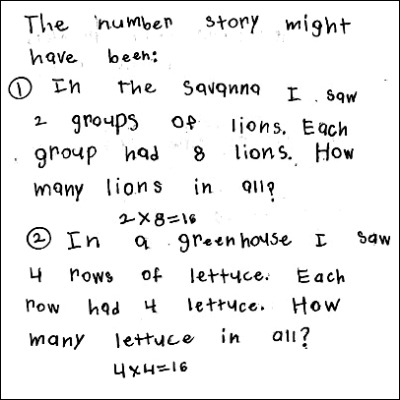 The number story might
have been:
① In the savanna I saw
2 groups of lions. Each
group had 8 lions. How
many lions in all?
2×8=16
② In a greenhouse I saw
4 rows of lettuce. Each
row had 4 lettuce. How
many lettuce in all?
4×4=16